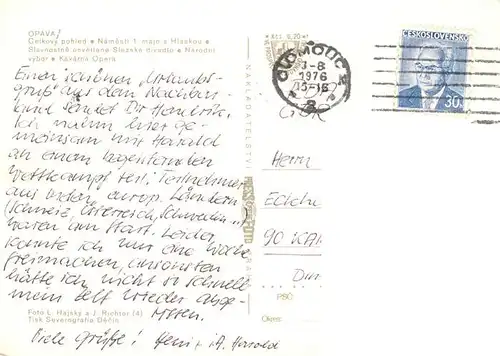 OPAVA
Celkový pohled • Náměstí 1. máje s Hláskou •
Slavnostně osvětlené Slezské divadlo • Národní
výbor • Kavárna Opera
Einen schönen Urlaubs-
gruß aus dem Nachbar-
land sendet Dir Hendrik.
Ich nahm hier ge-
meinsam mit Harald
an einem
Wettkampf teil. Teilnehmer
aus vielen europ. Ländern
(Schweiz, Österreich, Schweden...)
waren am Start. Leider
konnte ich nur eine Woche
freimachen, ansonsten
hätte ich nicht so schnell
mein Zelt wieder abge-
Foto L. Hajský a J. Richter (4)
Tisk Severografia Děčín
Viele Grüße! + i.A. Harald
NAKLADATELSTVÍ
OLOMOUC 2
-8
1976
15-18
ČESKOSLOVENSKO
30
ČSSR
Herrn
90
PSČ
Okres: